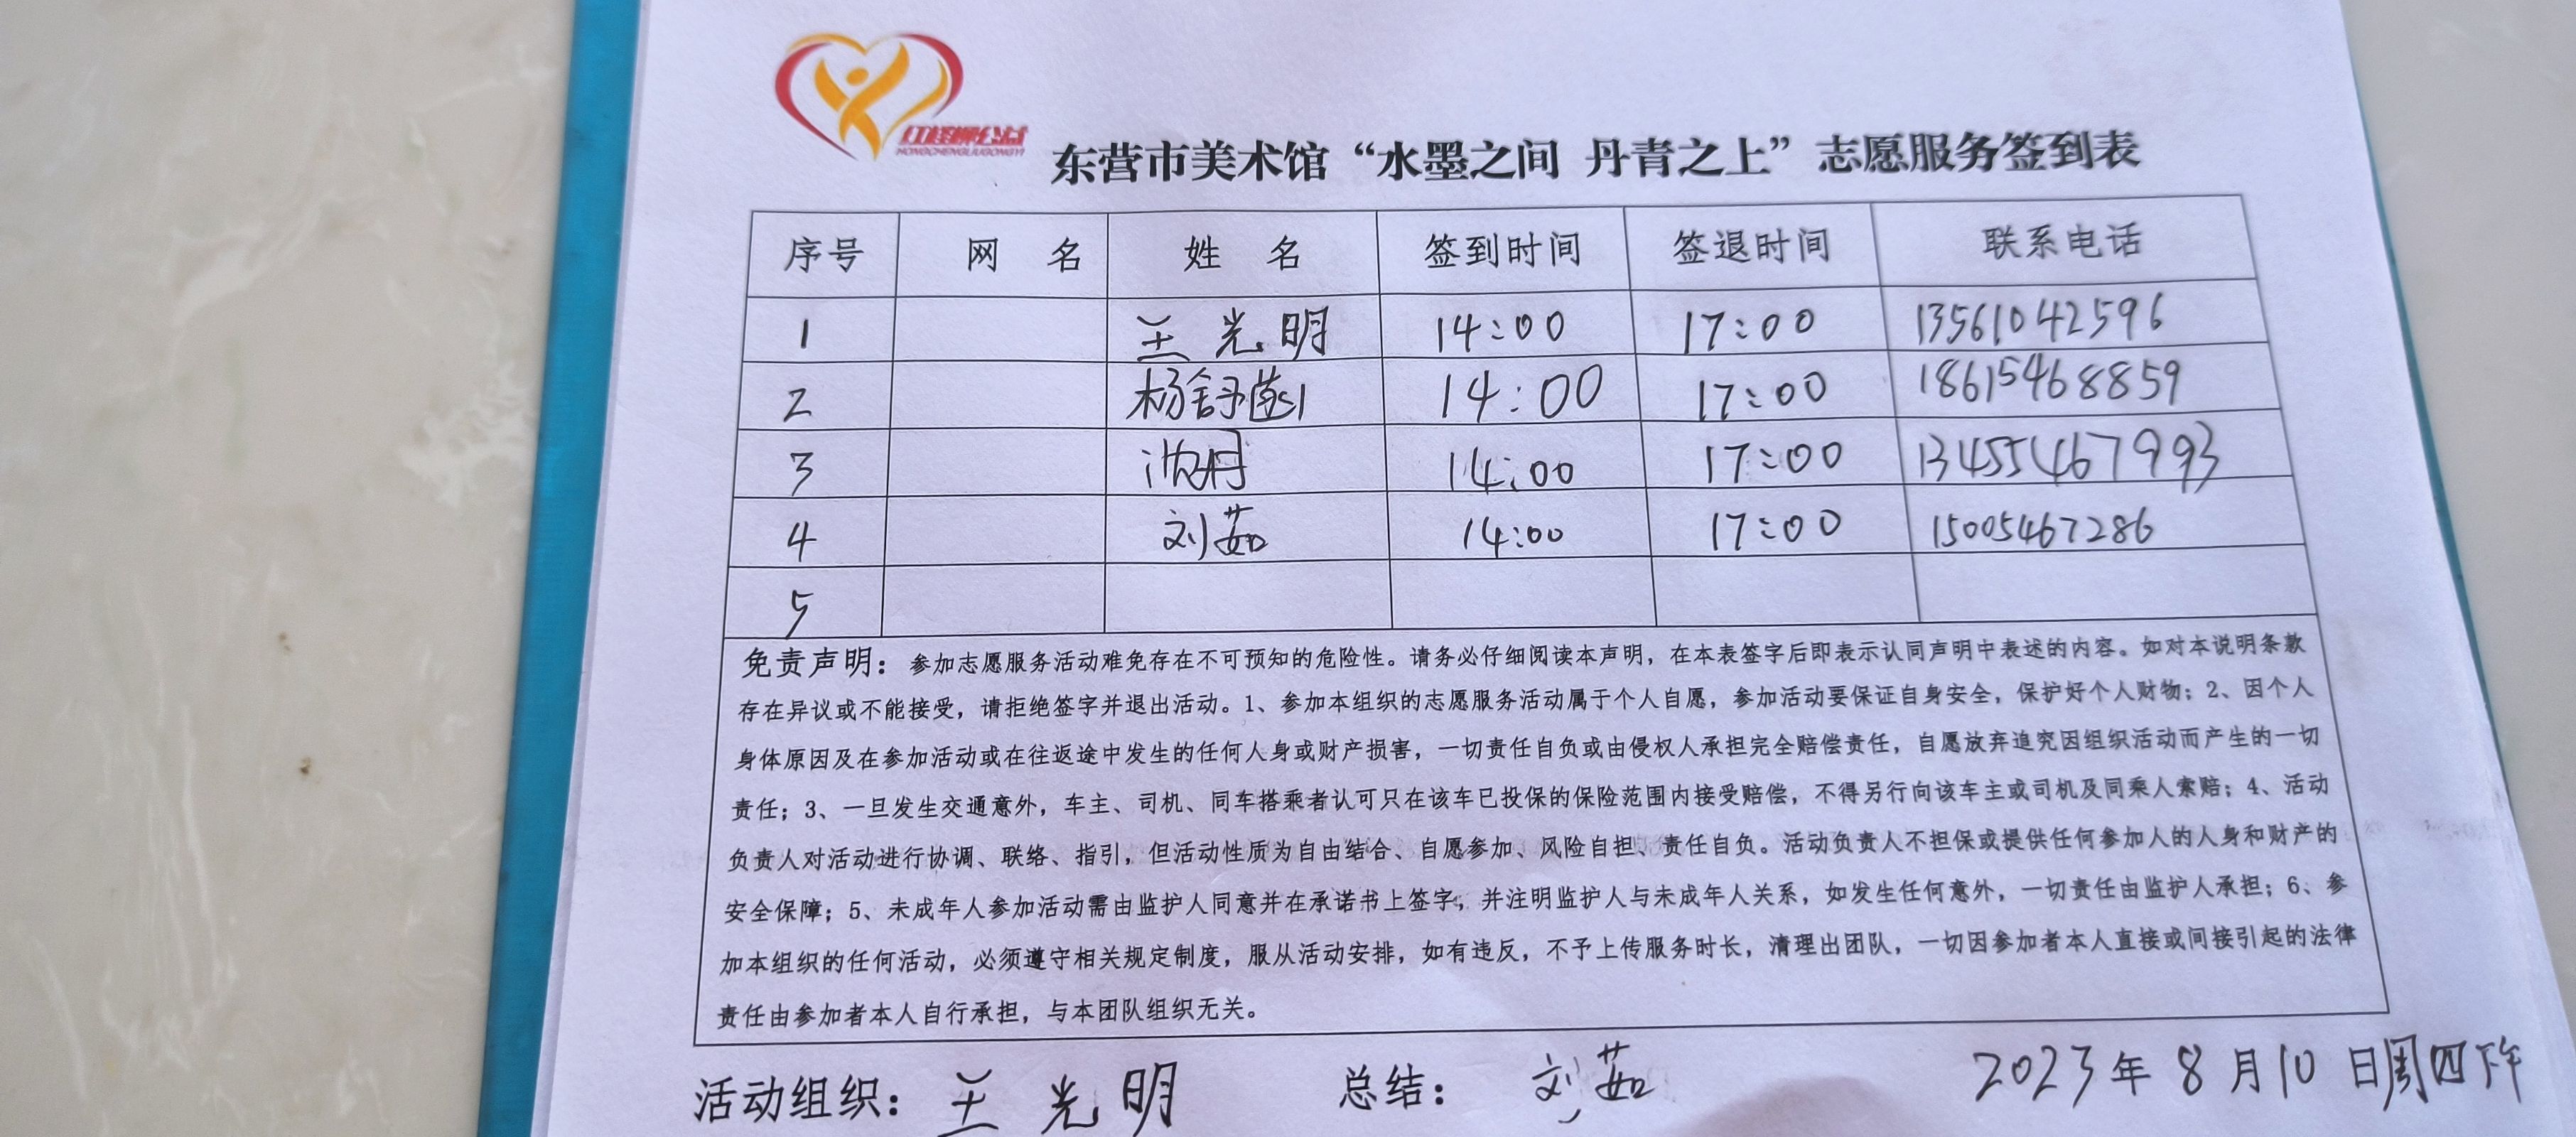 红柽柳公益
HONGCHENGLIUGONGYI
东营市美术馆“水墨之间 丹青之上”志愿服务签到表
序号 网 名 姓 名 签到时间 签退时间 联系电话
1 王光明 14:00 17:00 13561042596
2 杨舒 14:00 17:00 18615468859
3 14:00 17:00 13455467993
4 刘茹 14:00 17:00 15005467286
5
免责声明：参加志愿服务活动难免存在不可预知的危险性。请务必仔细阅读本声明，在本表签字后即表示认同声明中表述的内容。如对本说明条款
存在异议或不能接受，请拒绝签字并退出活动。1、参加本组织的志愿服务活动属于个人自愿，参加活动要保证自身安全，保护好个人财物；2、因个人
身体原因及在参加活动或在往返途中发生的任何人身或财产损害，一切责任自负或由侵权人承担完全赔偿责任，自愿放弃追究因组织活动而产生的一切
责任；3、一旦发生交通意外，车主、司机、同车搭乘者认可只在该车已投保的保险范围内接受赔偿，不得另行向该车主或司机及同乘人索赔；4、活动
负责人对活动进行协调、联络、指引，但活动性质为自由结合、自愿参加、风险自担、责任自负。活动负责人不担保或提供任何参加人的人身和财产的
安全保障；5、未成年人参加活动需由监护人同意并在承诺书上签字，并注明监护人与未成年人关系，如发生任何意外，一切责任由监护人承担；6、参
加本组织的任何活动，必须遵守相关规定制度，服从活动安排，如有违反，不予上传服务时长，清理出团队，一切因参加者本人直接或间接引起的法律
责任由参加者本人自行承担，与本团队组织无关。
活动组织：王光明 总结：刘茹 2023年8月10日周四下午